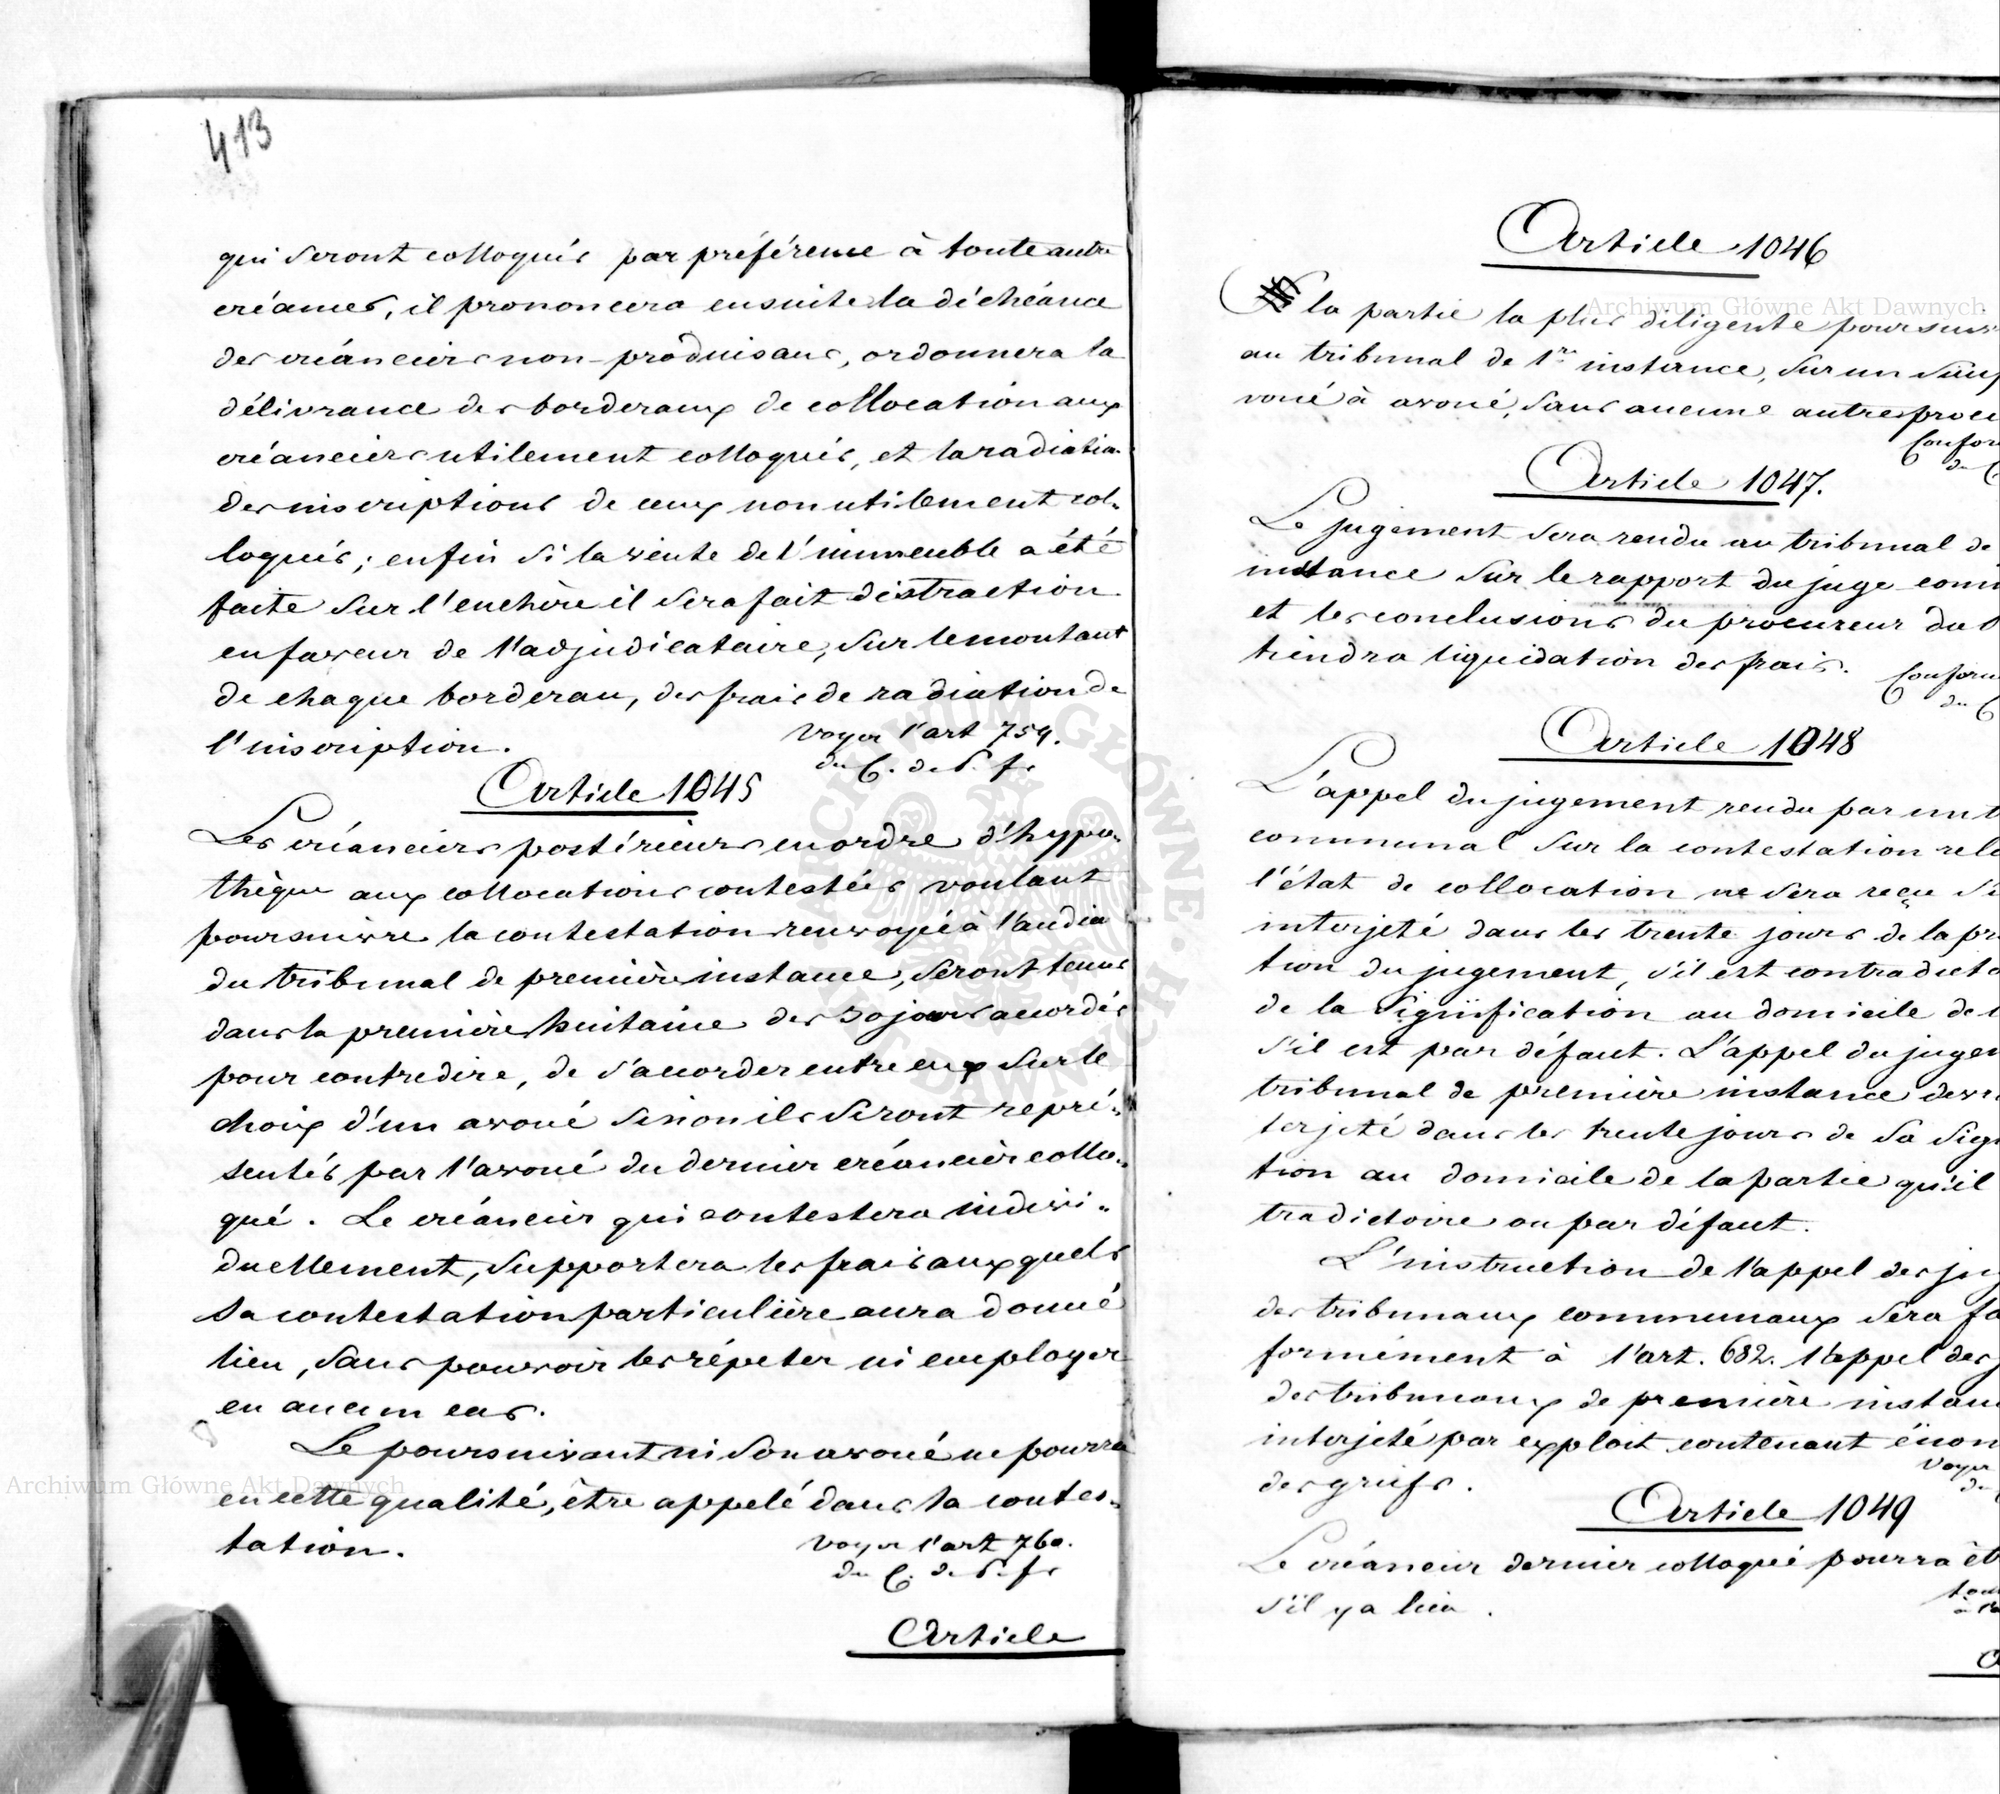 413
qui seront colloqués par préférence à toute autre
créances, il prononcera ensuite la déchéance
des créanciers non-produisans, ordonnera la
délivrance des borderaux de collocation aux
créanciers utilement colloqués, et la radiation
des inscriptions de ceux non utilement col-
loqués; enfin si la vente de l'immeuble a été
faite sur l'enchère il sera fait distraction
en faveur de l'adjudicataire, sur le montant
de chaque borderau, des frais de radiation de
l'inscription.
Voyez l'art 759.
du C. de P. fr
Article 1045
Les créanciers postérieurs en ordre d'hypo-
thèque aux collocations contestées voulant
poursuivre la contestation renvoyée à l'audien
du tribunal de première instance, seront tenus
dans la première huitaine des 30 jours accordés
pour contredire, de s'accorder entre eux sur le
choix d'un avoué sinon ils seront repré-
sentés par l'avoué du dernier créancier collo-
qué. Le créancier qui contestera indivi-
duellement, supportera les frais auxquels
sa contestation particulière aura donné
lieu, sans pouvoir les répéter ni employer
en aucun cas.
Le poursuivant ni son avoué ne pourra
en cette qualité, être appelé dans la contes-
tation.
Voyez l'art 760.
du C. de P. fr
Article
Article 1046
la partie la plus diligente poursuiv
au tribunal de 1re instance, sur un simp
voué à avoué, sans aucune autre procé
Confor
du C
Article 1047.
Le jugement sera rendu au tribunal de
instance sur le rapport du juge com
et les conclusions du procureur du
tiendra liquidation des frais.
Conform
du C
Article 1048
L'appel du jugement rendu par un t
communal sur la contestation rela
l'état de collocation ne sera reçu s'i
interjeté dans les trente jours de la pr
tion du jugement, s'il est contradicto
de la signification au domicile de
s'il est par défaut. L'appel du jugem
tribunal de première instance devr
terjeté dans les trente jours de sa sign
tion au domicile de la partie qu'il
tradictoire ou par défaut.
L'instruction de l'appel des jug
des tribunaux communaux sera fa
formément à l'art. 682. l'appel des j
des tribunaux de première instan
interjeté par exploit contenant énon
des griefs.
Voyez
du
Article 1049
Le créancier dernier colloqué pourra êt
s'il y a lieu.
Archiwum Główne Akt Dawnych
Archiwum Główne Akt Dawnych
ARCHIWUM GŁÓWNE AKT DAWNYCH